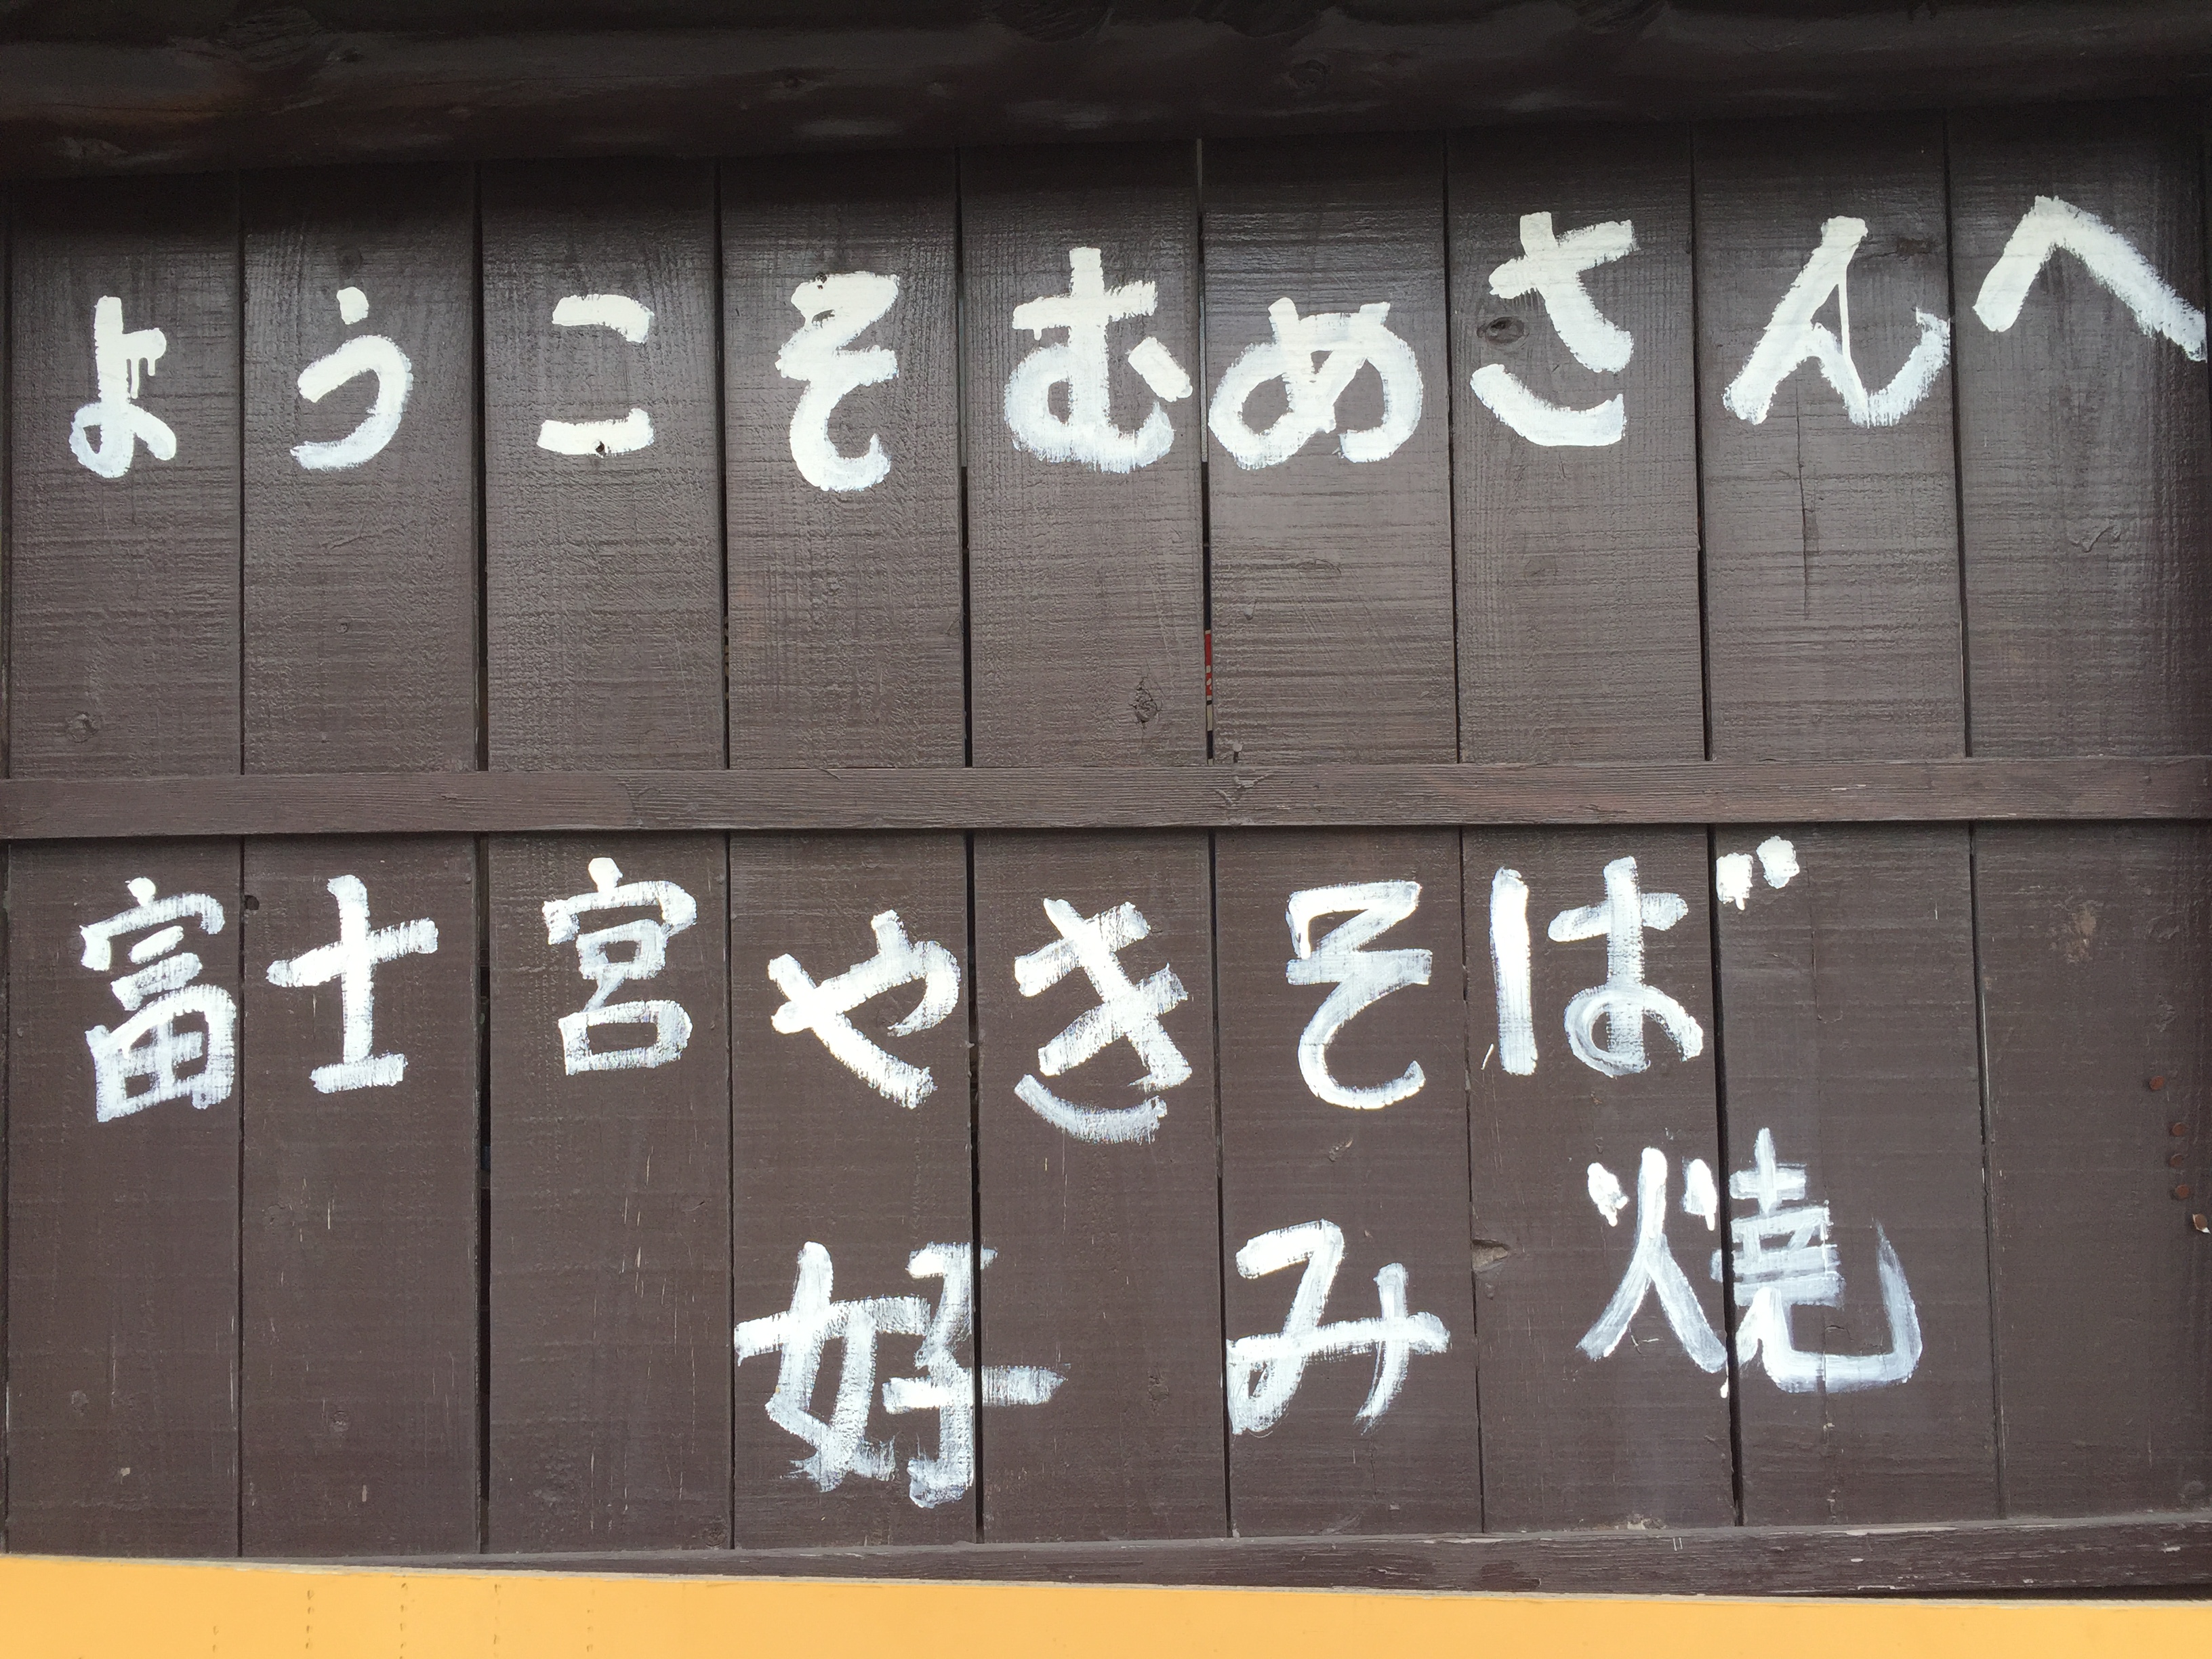 ようこそむめさんへ
富士宮やきそば
好み焼